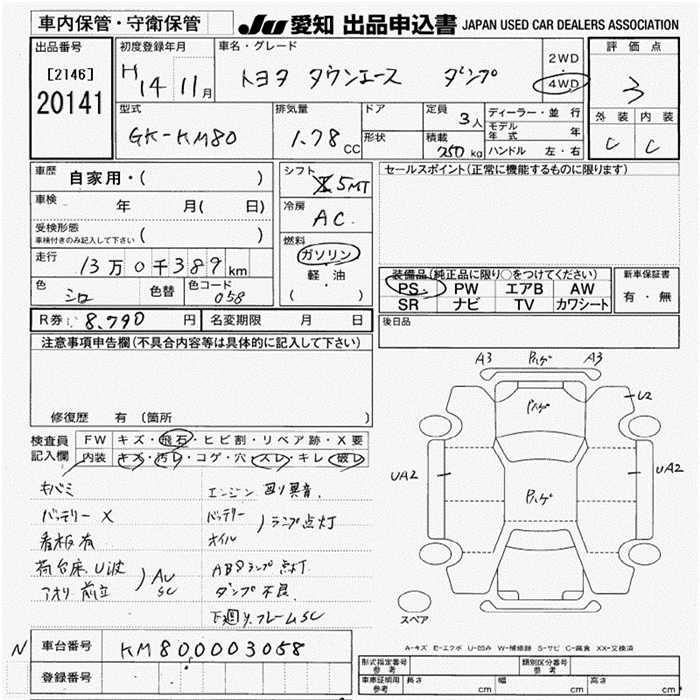 車内保管・守衛保管
JU 愛知 出品申込書 JAPAN USED CAR DEALERS ASSOCIATION
出品番号
[2146]
20141
初度登録年月
H 14 年 11月
車名・グレード
トヨタ タウンエース ダンプ
2WD
・
4WD
評価点
3
外装 内装
C C
型式
GK-KM80
排気量
1.78 CC
ドア
形状
定員 3人
積載 750 kg
ディーラー・並行
モデル年式 年
ハンドル 左・右
車歴 自家用・( )
車検 年 月( 日)
受検形態
車検付きのみ記入して下さい ( )
走行 13万0千389km
色 シロ
色替
色コード 058
シフト 5MT
冷房 AC
燃料
ガソリン
軽油
( )
セールスポイント(正常に機能するものに限ります)
装備品(純正品に限り○をつけてください)
PS PW エアB AW
SR ナビ TV カワシート
新車保証書
有・無
R券: 8,790 円 名変期限 月 日
後日品
注意事項申告欄(不具合内容等は具体的に記入して下さい)
修復歴 有 (箇所
検査員記入欄
FW キズ・飛石・ヒビ割・リペア跡・X要
内装 キズ・汚レ・コゲ・穴・スレ・キレ・破レ
キバミ
バッテリーX
看板有
荷台床、U波
アオリ 前立
) AU SC
エンジン 回り異音.
バッテリー
オイル
) ランプ点灯
ABSランプ 点灯
ダンプ 不良
下廻り,フレームSC
A3 ハゲ A3
ハゲ
U2
UA2
ハゲ
UA2
スペア
A-キズ E-エクボ U-凹み W-補修跡 S-サビ C-腐食 XX-交換済
N 車台番号 KM80 0003058
登録番号
形式指定番号 参考
類別区分番号 参考
車庫証明用 参考
長さ cm
幅 cm
高さ cm